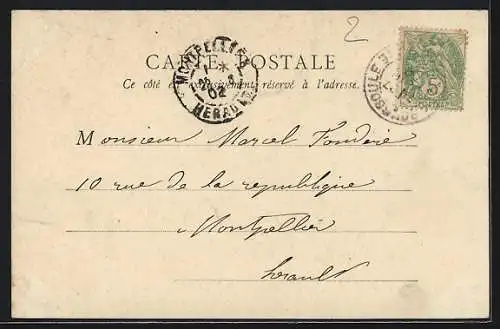 2
CARTE POSTALE
Ce côté est exclusivement réservé à l'adresse.
MONTPELLIER
02
HERAULT
5
Monsieur Marcel Foudère
10 rue de la republique
Montpellier
Herault